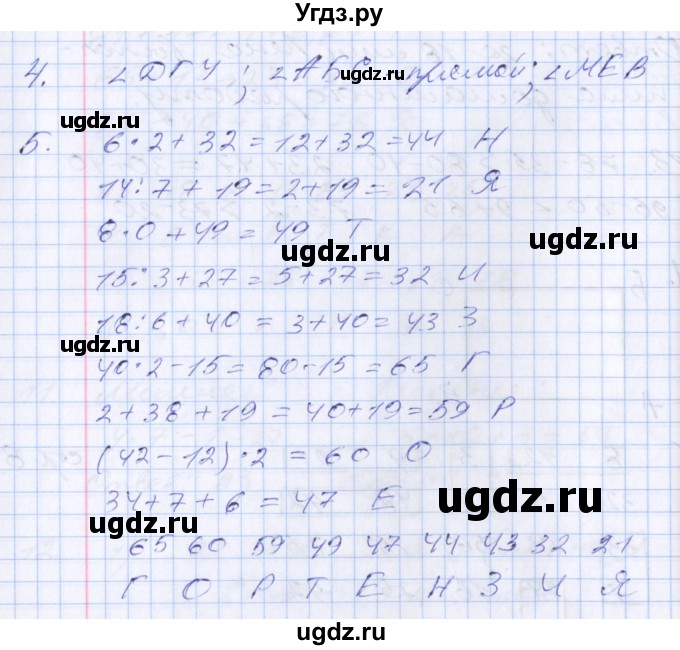 Угдз.ру
4. ∠ДГУ; ∠АБС прямой; ∠МЕВ
ugdz.ru ugdz.ru
5. 6·2+32=12+32=44 Н
14:7+19=2+19=21 Я
ugdz.ru ugdz.ru
8·0+49=49 Т
ugdz.ru
15:3+27=5+27=32 И
18:6+40=3+40=43 З
ugdz.ru ugdz.ru
40·2-15=80-15=65 Г
2+38+19=40+19=59 Р
ugdz.ru
(42-12)·2=60 О
34+7+6=47 Е
ugdz.ru ugdz.ru
65 60 59 49 47 44 43 32 21
Г О Р Т Е Н З И Я
ugdz.ru